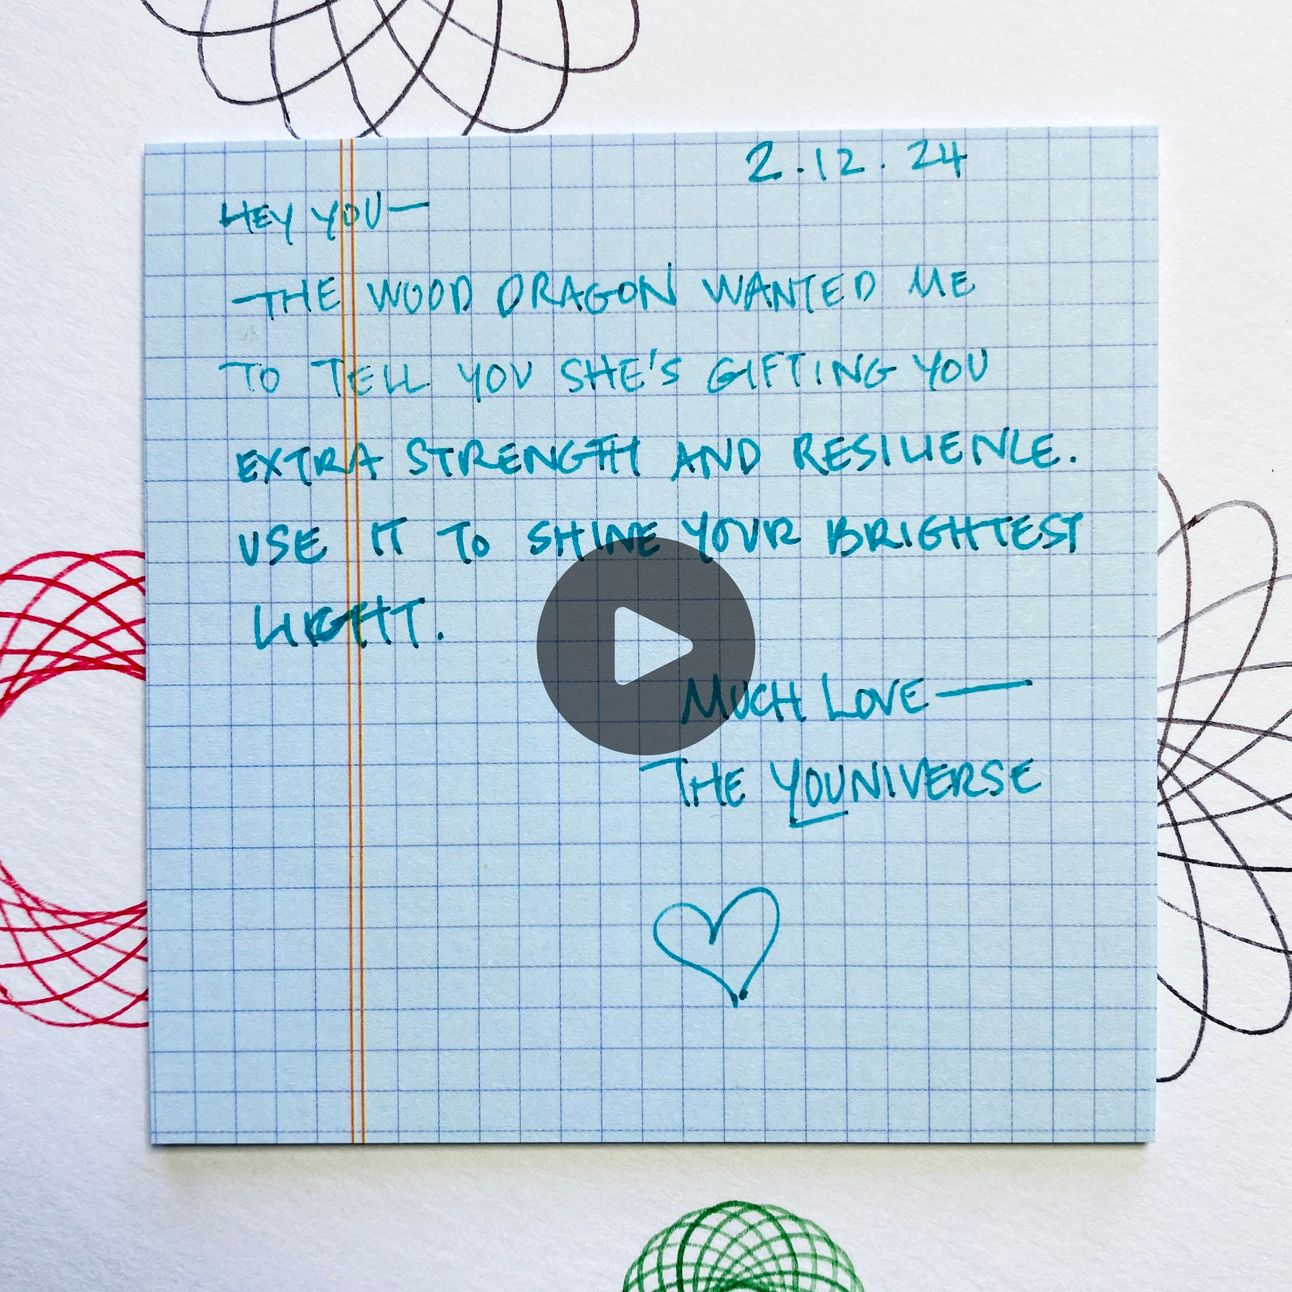 2.12.24
HEY YOU—
THE WOOD DRAGON WANTED ME
TO TELL YOU SHE'S GIFTING YOU
EXTRA STRENGTH AND RESILIENCE.
USE IT TO SHINE YOUR BRIGHTEST
LIGHT.
MUCH LOVE—
THE YOUNIVERSE